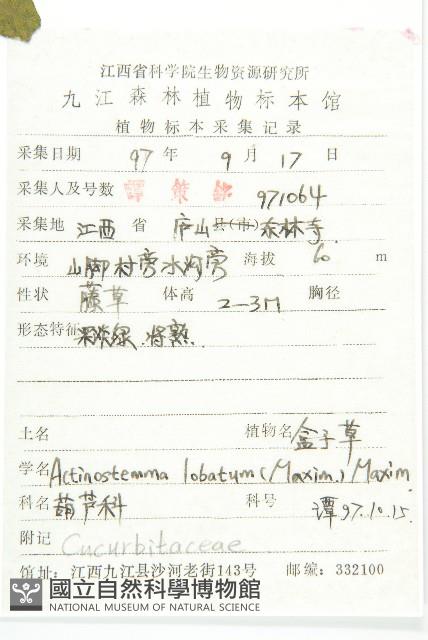 江西省科学院生物资源研究所
九江森林植物标本馆
植物标本采集记录
采集日期 97年 9月 17日
采集人及号数 谭策铭 971064
采集地 江西省 庐山县(市)东林寺
环境 山脚村旁水沟旁 海拔 60 m
性状 藤草 体高 2-3M 胸径
形态特征 果淡绿.将熟.
土名 植物名 盒子草
学名 Actinostemma lobatum (Maxim.) Maxim.
科名 葫芦科 科号 谭97.10.15.
附记 Cucurbitaceae
馆址:江西九江县沙河老街143号 邮编:332100
國立自然科學博物館
NATIONAL MUSEUM OF NATURAL SCIENCE